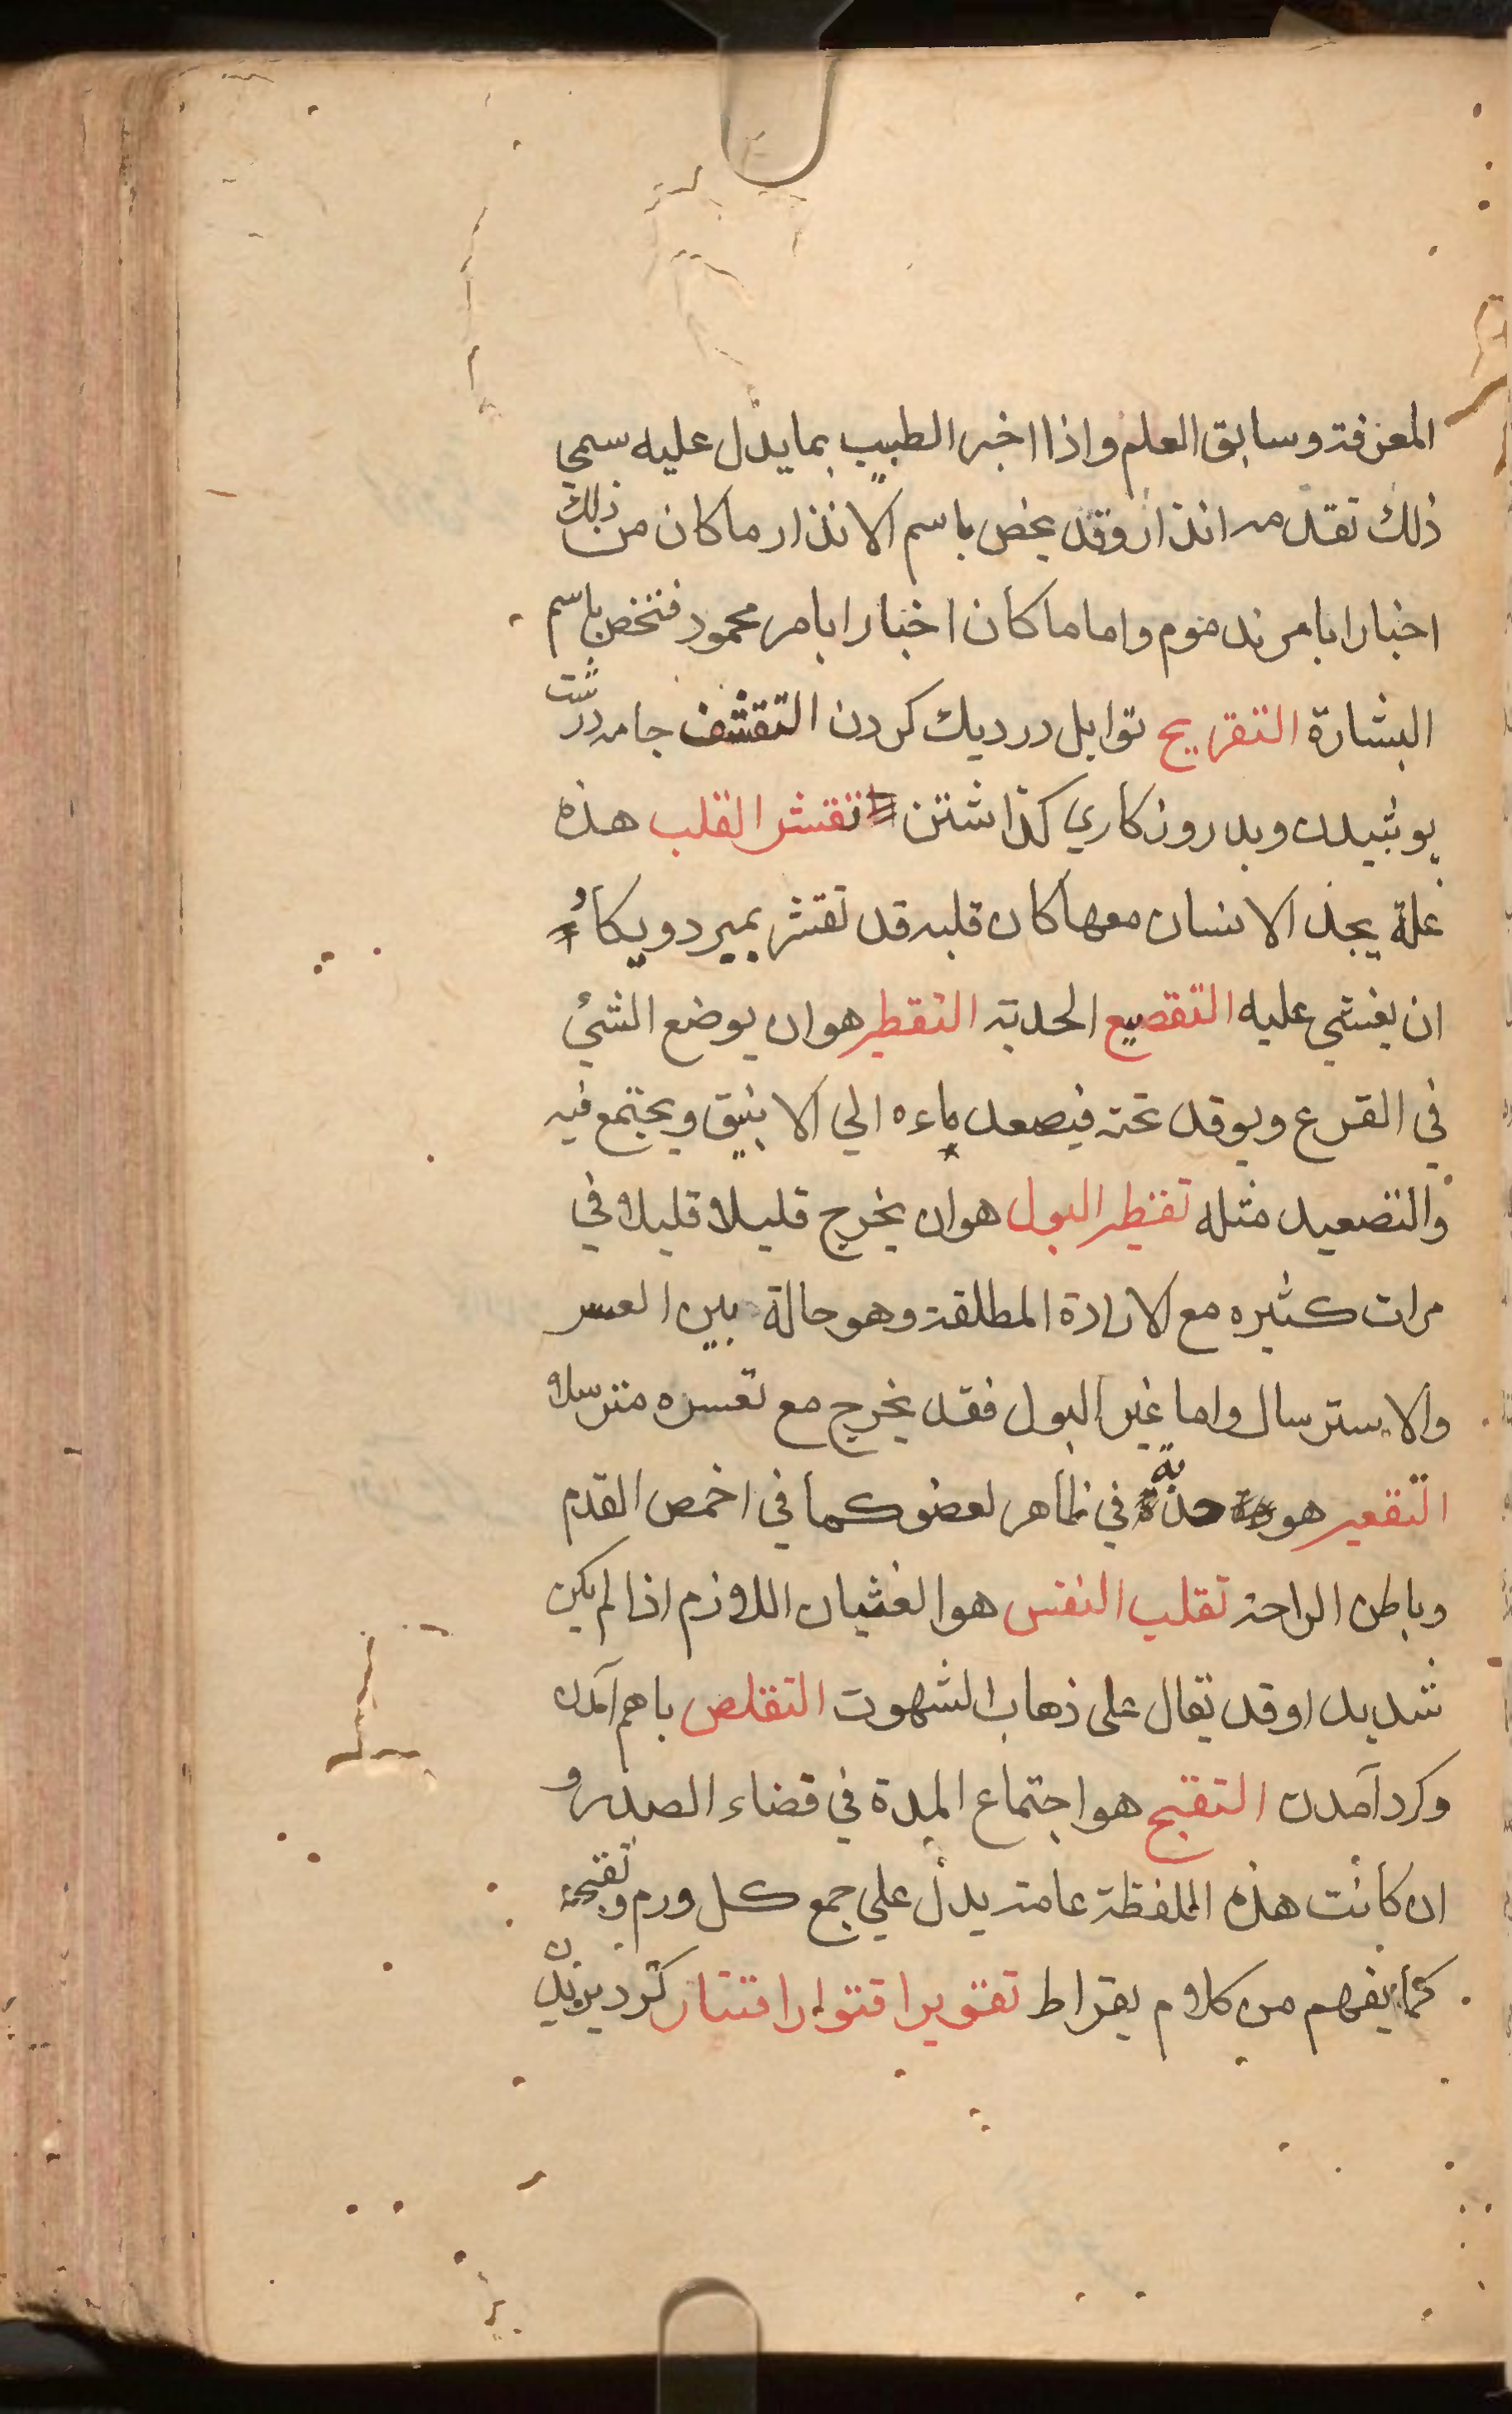 المعرفة وسابق العلم واذا اخبر الطبيب بما يدل عليه سمي
ذلك تقدمه انذار وقد يخص باسم الانذار ما كان من ذلك
اخبارا بامر ندموم واما ما كان اخبارا بامر محمود فتخص باسم
البشارة التقريح توابل در ديك كردن التقشف جامه درشت
پوشيدن وبد روزكاري كذاشتن تقشر القلب هذه
علة يجد الانسان معها كان قلبه قد تقشر بميرد ويكاد
ان يغشي عليه التقصيع الحدبة التقطير هو ان يوضع الشئ
في القرع ويوقد تحته فيصعد ماءه الي الانبيق ويجتمع فيه
والتصعيد مثله تقطير البول هو ان يخرج قليلا قليلا في
مرات كثيره مع الارادة المطلقة وهو حالة بين العسر
والاسترسال واما غير البول فقد يخرج مع تعسره مترسلا
التقعير هو حدبة في ظاهر لعضو كما في اخمص القدم
وباطن الراحة تقلب النفس هو الغثيان اللازم اذا لم يكن
شديدا وقد يقال على ذهاب الشهوت التقلص باهم آمدن
وكرد آمدن التقيح هو اجتماع المدة في قضاء الصدر و
ان كانت هذه اللفظة عامة يدل علي جمع كل ورم وتقيحه
كما يفهم من كلام بقراط تقوير اقتوار اقتيار كرد بريدن